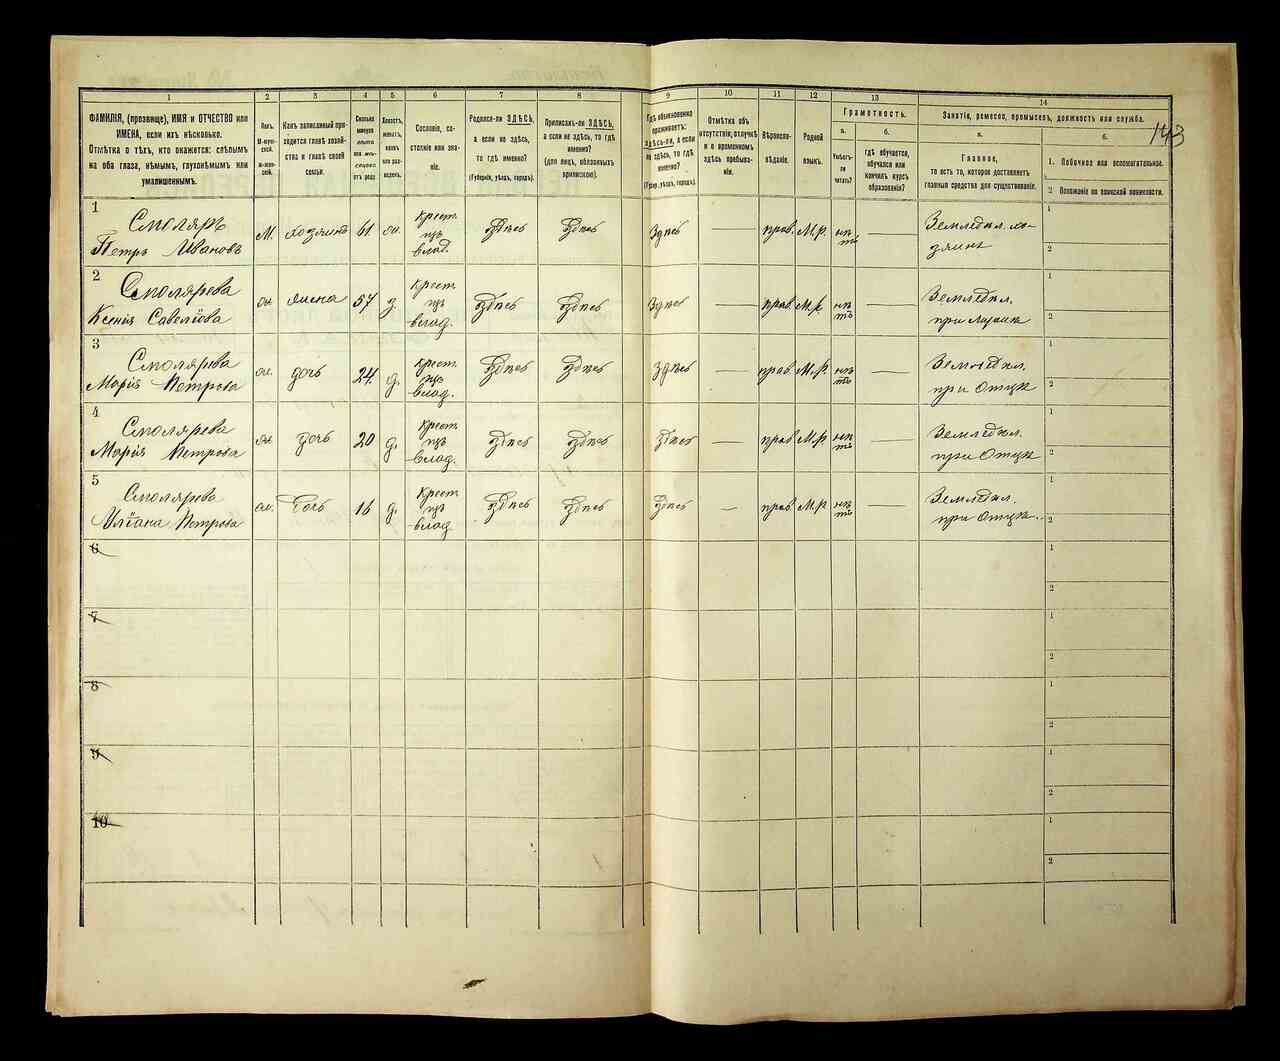 1
2
3
4
5
6
7
8
9
10
11
12
13
14
143
ФАМИЛІЯ, (прозвище), ИМЯ и ОТЧЕСТВО или
ИМЕНА, если ихъ нѣсколько.
Отмѣтка о тѣхъ, кто окажется: слѣпымъ
на оба глаза, нѣмымъ, глухонѣмымъ или
умалишеннымъ.
Полъ.
М-мужской.
Ж-женскій.
Какъ записанный приходится главѣ хозяйства и главѣ своей
семьи.
Сколько
минуло
лѣтъ
или мѣсяцевъ
отъ роду
Холостъ,
женатъ,
вдовъ
или разведенъ.
Сословіе, состояніе или званіе.
Родился-ли ЗДѢСЬ,
а если не здѣсь,
то гдѣ именно?
(Губернія, уѣздъ, городъ).
Приписанъ-ли ЗДѢСЬ,
а если не здѣсь, то гдѣ
именно?
(для лицъ, обязанныхъ
припискою).
Гдѣ обыкновенно
проживаетъ:
здѣсь-ли, а если
не здѣсь, то гдѣ
именно?
(Губер., уѣздъ, городъ).
Отмѣтка объ
отсутствіи, отлучкѣ
и о временномъ
здѣсь пребываніи.
Вѣроисповѣданіе.
Родной
языкъ.
Грамотность.
а.
Умѣетъ-ли
читать?
б.
гдѣ обучается,
обучался или
кончилъ курсъ
образованія?
Занятіе, ремесло, промыселъ, должность или служба.
а.
Главное,
то есть то, которое доставляетъ
главныя средства для существованія.
б.
1. Побочное или вспомогательное.
2 Положеніе по воинской повинности.
1
Смоляръ
Петръ Ивановъ
М. хозяинъ 61 Крест.
влад.
здѣсь здѣсь Здѣсь — прав. М.р. нѣтъ —
Земледѣл. хозяинъ
1
2
2
Смолярева
Ксенія Савеліова
жена 57 Крест.
влад.
здѣсь здѣсь Здѣсь — прав. М.р. нѣтъ —
Земледѣл.
при
1
2
3
Смолярева
Марія Петрова
дочь 24 д. Крест.
влад.
здѣсь здѣсь Здѣсь — прав. М.р. нѣтъ —
Земледѣл.
при Отцѣ
1
2
4
Смолярева
Марія Петрова
дочь 20 д. Крест.
влад.
здѣсь здѣсь здѣсь — прав. М.р. нѣтъ —
Земледѣл.
при Отцѣ
1
2
5
Смолярева
Уліана Петрова
дочь 16 д. Крест.
влад.
здѣсь здѣсь здѣсь — прав. М.р. нѣтъ —
Земледѣл.
при Отцѣ.
1
2
6
1
2
7
1
2
8
1
2
9
1
2
10
1
2